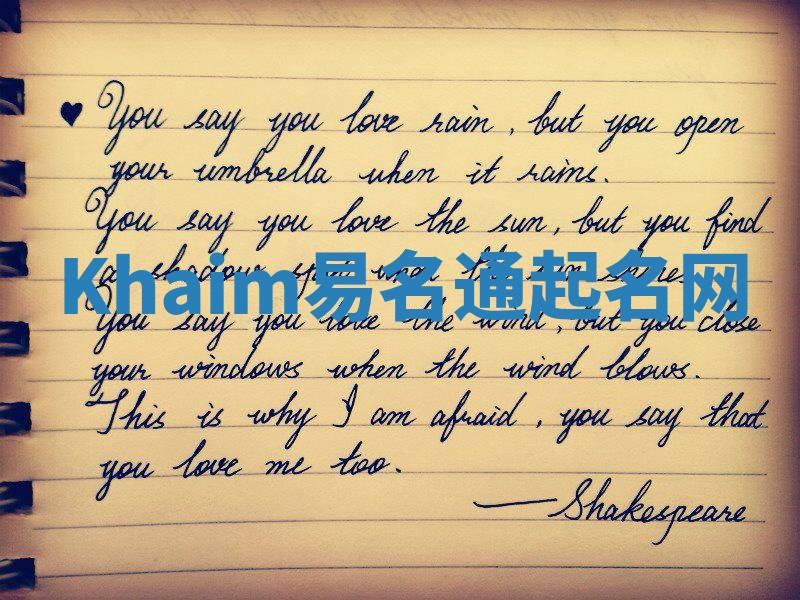 ♥ You say you love rain, but you open
your umbrella when it rains.
You say you love the sun, but you find
a shadow spot when the sun shines.
Khaim易名通起名网
You say you love the wind, but you close
your windows when the wind blows.
This is why I am afraid, you say that
you love me too.
— Shakespeare